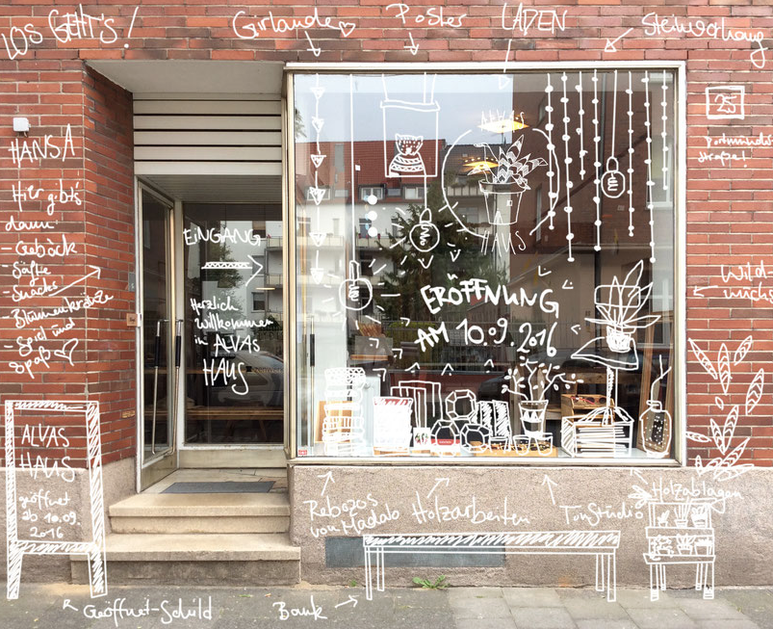 LOS GEHT'S!
Girlande
Poster
LADEN
Steinvorhang
25
Dortmunder
straße!
HANSA
Hier gibt's
dann
- Gebäck
- Säfte
- Snacks
- Blumenkränze
- Spiel und
Spaß
EINGANG
Herzlich
willkommen
in ALVAS
HAUS
ALVAS
HAUS
ERÖFFNUNG
AM 10.9.2016
Wild-
wuchs
ALVAS
HAUS
geöffnet
ab 10.09.
2016
Rebozos
von Madalo
Holzarbeiten
TonStudio
Holzablagen
Geöffnet-Schild
Bank